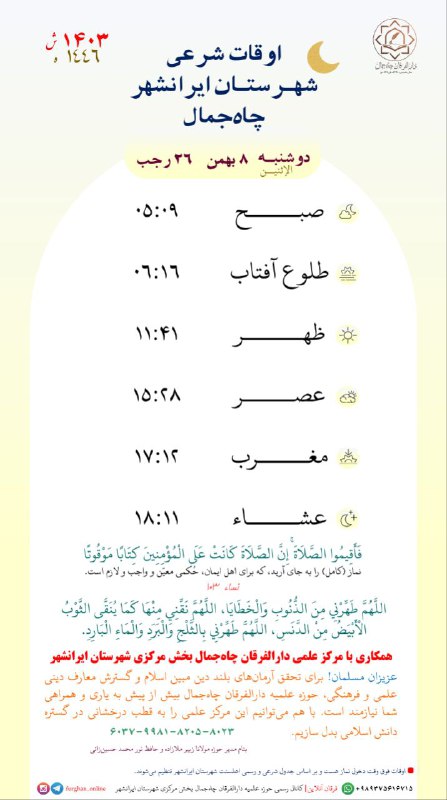 ۱۴۰۳ ش
۱۴۴۶ ه
اوقات شرعی
شهرستان ایرانشهر
چاه‌جمال
دارالفرقان چاه‌جمال
دوشنبه ۸ بهمن ۲۶ رجب
الإثنین
صبح ۰۵:۰۹
طلوع آفتاب ۰۶:۱۶
ظهر ۱۱:۴۱
عصر ۱۵:۲۸
مغرب ۱۷:۱۲
عشاء ۱۸:۱۱
فَأَقِيمُوا الصَّلَاةَ ۚ إِنَّ الصَّلَاةَ كَانَتْ عَلَى الْمُؤْمِنِينَ كِتَابًا مَوْقُوتًا
نماز (کامل) را به جای آرید، که برای اهل ایمان، حکمی معیّن و واجب و لازم است.
نساء ۱۰۳
اللَّهُمَّ طَهِّرْنِي مِنَ الذُّنُوبِ وَالْخَطَايَا، اللَّهُمَّ نَقِّنِي مِنْهَا كَمَا يُنَقَّى الثَّوْبُ
الْأَبْيَضُ مِنْ الدَّنَسِ، اللَّهُمَّ طَهِّرْنِي بِالثَّلْجِ وَالْبَرَدِ وَالْمَاءِ الْبَارِدِ.
همکاری با مرکز علمی دارالفرقان چاه‌جمال بخش مرکزی شهرستان ایرانشهر
عزیزان مسلمان! برای تحقق آرمان‌های بلند دین مبین اسلام و گسترش معارف دینی
علمی و فرهنگی، حوزه علمیه دارالفرقان چاه‌جمال بیش از پیش به یاری و همراهی
شما نیازمند است. با هم می‌توانیم این مرکز علمی را به قطب درخشانی در گستره
دانش اسلامی بدل سازیم. ۶۰۳۷-۹۹۸۱-۸۲۰۵-۸۰۲۳
بنام مدیر حوزه مولانا زبیر ملازاده و حافظ نور محمد حسین‌زائی
اوقات فوق وقت دخول نماز هست و بر اساس جدول درعی و رسمی اهلسنت شهرستان ایرانشهر تنظیم می‌شوند.
۰۹۸۹۳۷۵۶۱۶۷۱۵+ فرقان آنلاین| کانال رسمی حوزه علمیه دارالفرقان چاه‌جمال بخش مرکزی شهرستان ایرانشهر furghan_online